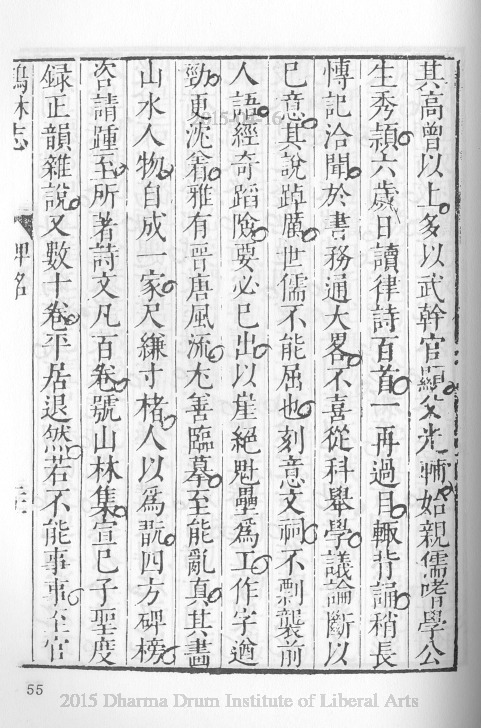 其高曾以上多以武幹官顯父光輔始親儒嗜學公
生秀頴六歲日讀律詩百首一再過目輙背誦稍長
慱記洽聞於書務通大畧不喜從科舉學議論斷以
已意其說踔厲世儒不能屈也刻意文祠不剽襲前
人語經奇蹈險要必已出以崖絕魁壘爲工作字遒
勁更沈着雅有晉唐風流尢善臨摹至能亂真其畵
山水人物自成一家尺縑寸楮人以爲翫四方碑榜
咨請踵至所著詩文凡百卷號山林集宣巳子聖度
録正韻雜說又數十卷平居退然若不能事事至官
林志
碑銘
55
2015 Dharma Drum Institute of Liberal Arts